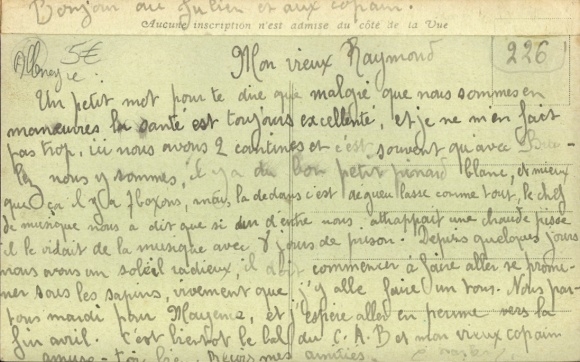 Bonjour au Julien et aux copain.
Aucune inscription n'est admise du côté de la Vue
5€
226
Mon vieux Raymond
Un petit mot pour te dire que malgré que nous sommes en
manœuvres la santé est toujours excellente, et je ne m'en fait
pas trop, ici nous avons 2 cantines et c'est souvent qu'avec
nous y sommes, il y a du bon petit pinard blanc, et mieux
que ça il y a 7 boxons, mais la dedans c'est degueulasse comme tout, le chef
de musique nous a dit que si un d'entre nous atthappait une chaude pisse
il le vidait de la musique avec 8 jours de prison. Depuis quelques jours
nous avons un soleil radieux, il doit commencer à faire aller se prome-
ner sous les sapins, vivement que j'y alle faire un tour. Nous par-
tons mardi pour Mayence, et j'espère aller en perme vers la
fin avril. C'est bientot le bal du C. A. B et mon vieux copain
amuse-toi bien. Reçois mes amitiés.